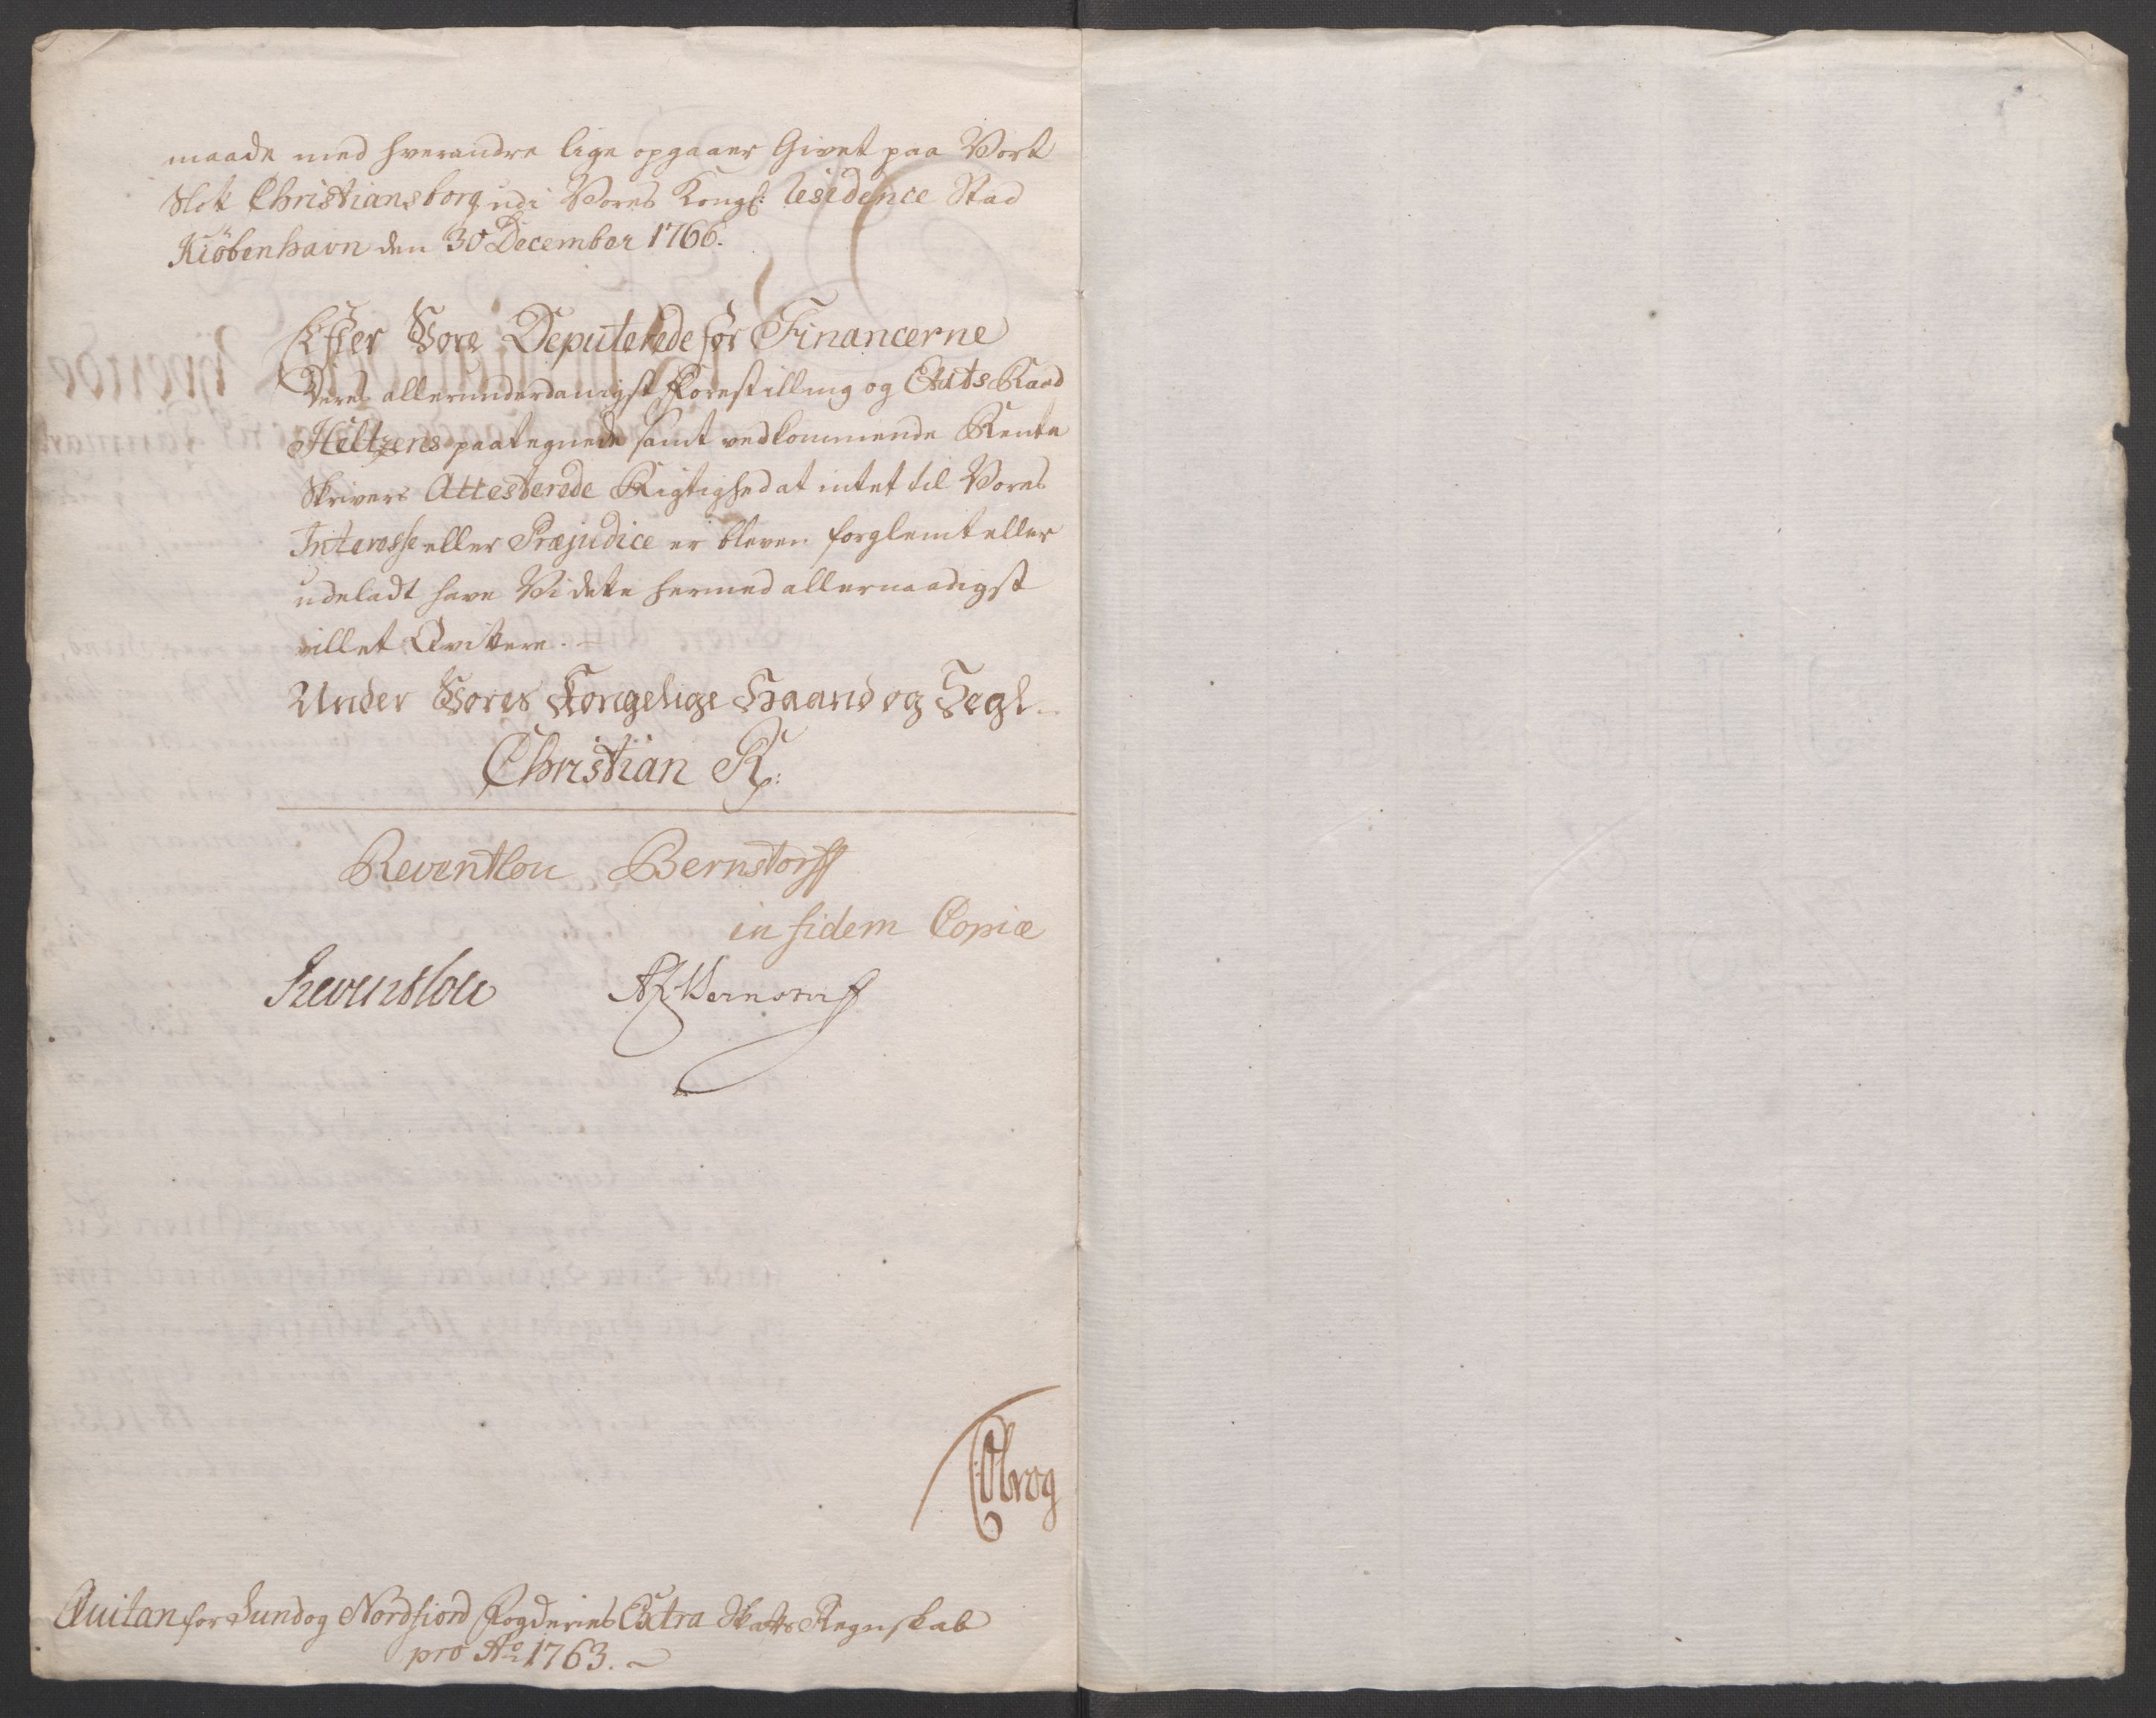 maade med hverandre lige opgaaer Givet paa Vort
Slot Christiansborg udi Vores Kongl: Residence Stad
Kiöbenhavn den 30 December 1766.
Efter Vore Deputerede for Financerne
Deres allerunderdanigst Forestilling og Etats Raad
Heltzens paategnede samt vedkommende Rente
Skrivers Attesterede Rigtighed at intet til Vores
Interesse eller Præjudice er bleven forglemt eller
udeladt have Vi dette hermed allernaadigst
villet Qvittere.
Under Vores Kongelige Haand og Segl.
Christian R:
Reventlou Bernstorff
in fidem Copiæ
Reventlou Bernstorff
Quitan for Sund og Nordfiord Fogderies Extra Skatts Regnskab
pro Ao 1763.